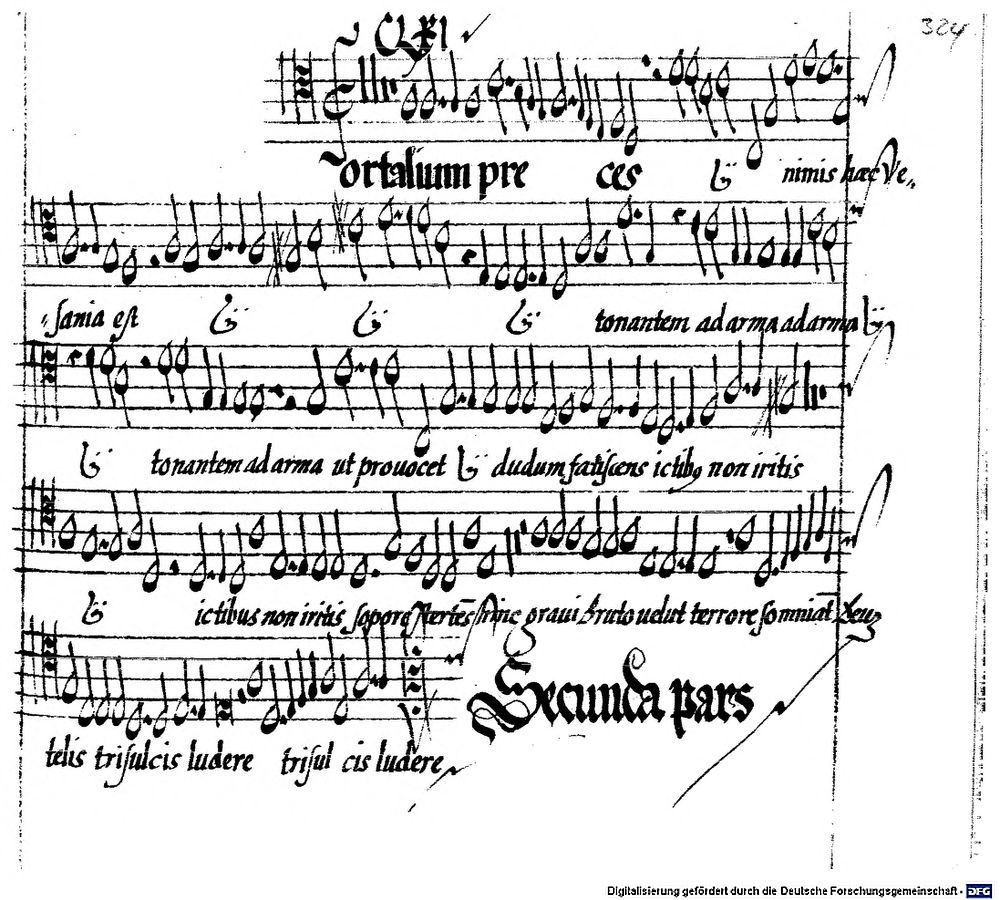 CLXI
324
ortalium pre ces ij nimis hæc Ve„
„sania est ij ij ij tonantem ad arma ad arma ij
ij tonantem ad arma ut prouocet ij dudum fatiscens ictibꝫ non iritis
ij ictibus non iritis sopore stertēs hinc graui Bruto uelut terrore somniat
telis trisulcis ludere trisul cis ludere
Secunda pars
Digitalisierung gefördert durch die Deutsche Forschungsgemeinschaft - DFG